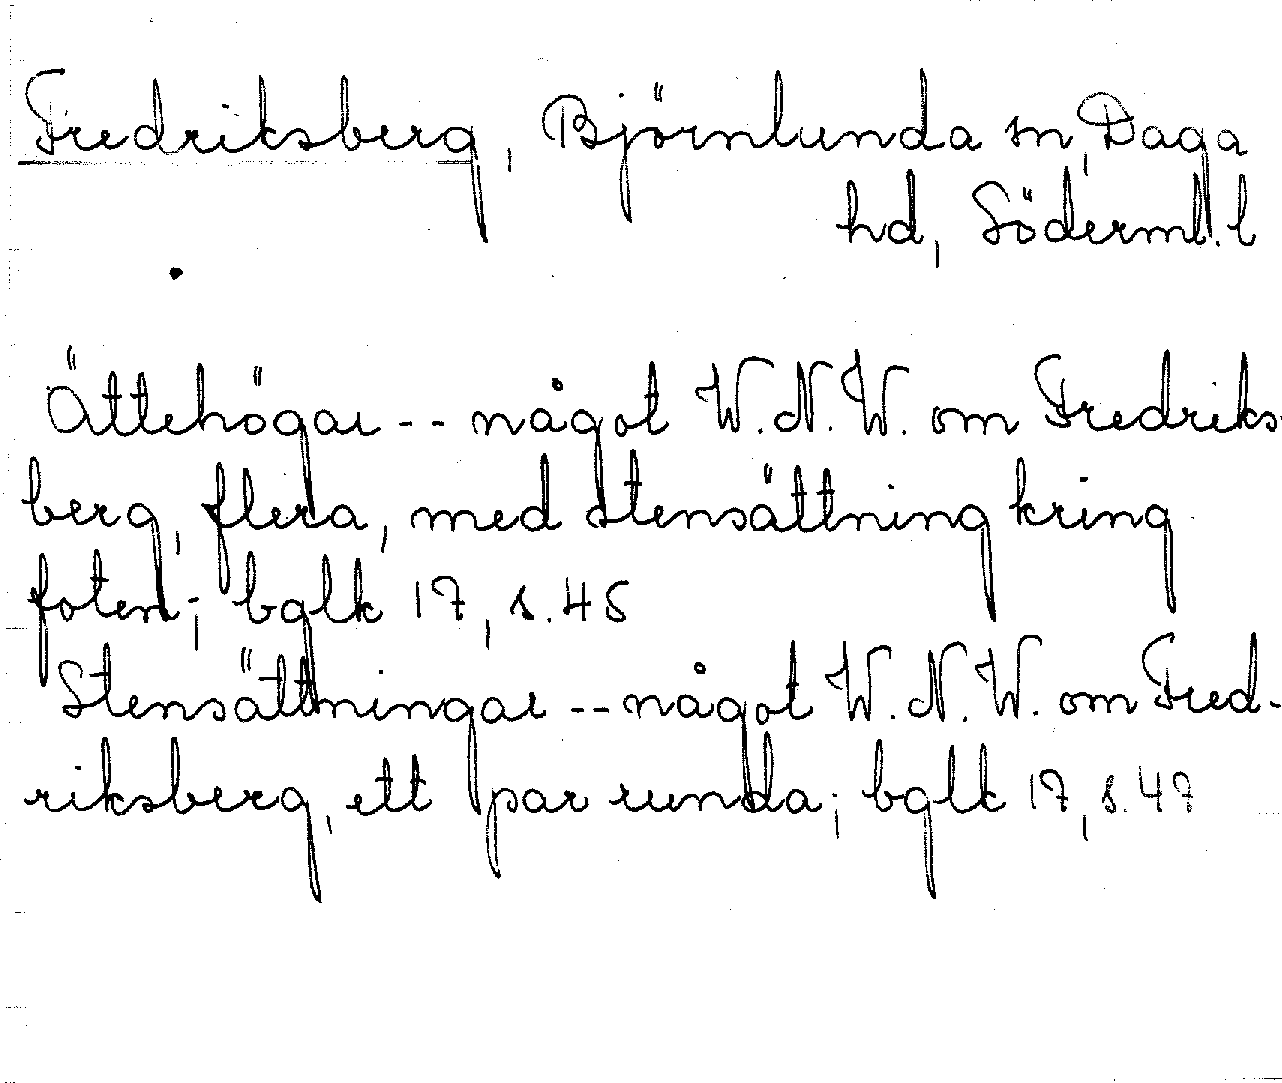 Fredriksberg, Björnlunda sn, Daga
hd, Söderml. l
Ättehögar -- något W.N.W. om Fredriks-
berg, flera, med stensättning kring
foten; bglk 17, s. 45
Stensättningar -- något W.N.W. om Fred-
riksberg, ett par runda; bglk 17, s. 47